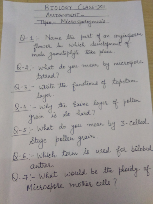 BIOLOGY CLASS XII
Assignment
Topic - Microsporogenesis
Q.1 - Name the part of an angiosperm
flower in which development of
male gametophyte take place.
Q.2 - What do you mean by microspore
tetrad?
Q.3 - Write the functions of tapetum
layer.
Q.4 - Why the Exine layer of pollen
grain is so hard?
Q.5 - What do you mean by 3-celled
stage pollen grain.
Q.6 - Which term is used for bilobed
anther.
Q.7 - What would be the ploidy of
Microspore mother cells?